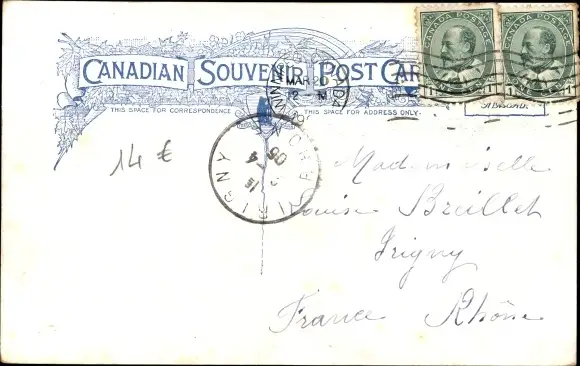 CANADIAN SOUVENIR POST CAR
THIS SPACE FOR CORRESPONDENCE THIS SPACE FOR ADDRESS ONLY.
CANADA POSTAGE
CANADA POSTAGE
MAR 20
14 €
IRIGNY
Mademoiselle
Louise Breillet
Irigny
France Rhône